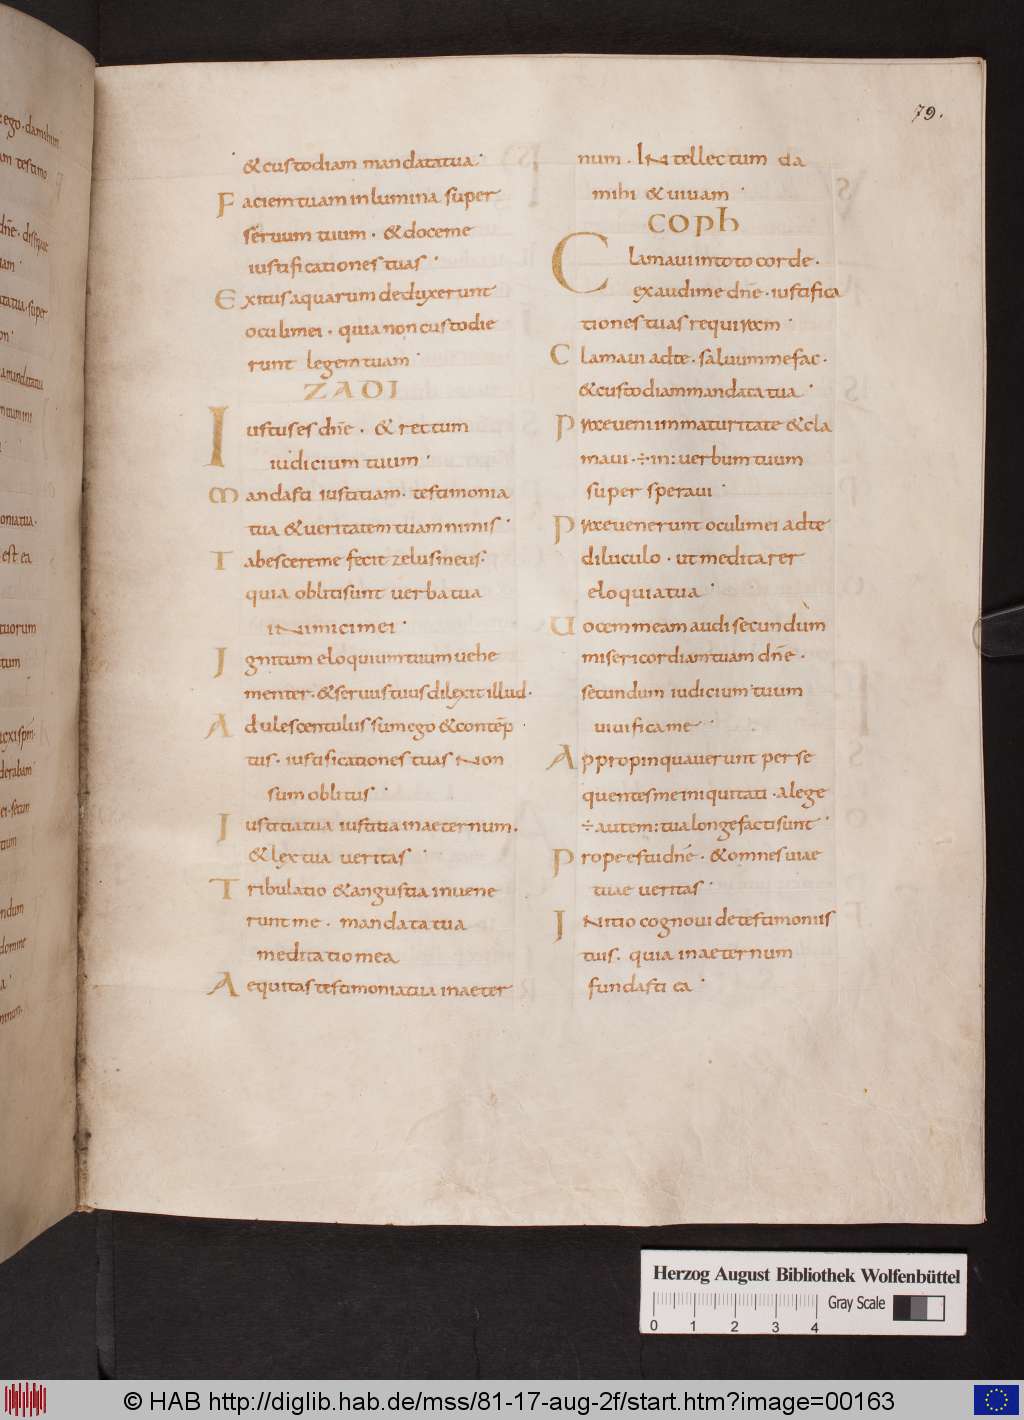 79.
& custodiam mandata tua.
Faciem tuam in lumina super
seruum tuum. & doce me
iustificationes tuas.
Exitus aquarum deduxerunt
oculi mei. quia non custodie
runt legem tuam.
ZADI
Iustus es dñe. & rectum
iudicium tuum.
Mandasti iustitiam. testimonia
tua & ueritatem tuam nimis.
Tabescere me fecit zelus meus.
quia obliti sunt uerba tua
inimici mei.
Ignitum eloquium tuum uehe
menter. & seruus tuus dilexit illud.
Adulescentulus sum ego & contēp
tus. iustificationes tuas non
sum oblitus.
Iustitia tua iustitia in aeternum.
& lex tua ueritas.
Tribulatio & angustia inuene
runt me. mandata tua
meditatio mea
Aequitas testimonia tua in aeter
num. Intellectum da
mihi & uiuam.
COPh
Clamaui in toto corde.
exaudi me dñe. iustifica
tiones tuas requiram.
Clamaui ad te. saluum me fac.
& custodiam mandata tua.
Praeueni in maturitate & cla
maui. ÷ in: uerbum tuum
super speraui.
Praeuenerunt oculi mei ad te
diluculo. ut meditarer
eloquia tua.
Uocem meam audi secundum
misericordiam tuam dñe.
secundum iudicium tuum
uiuifica me
Appropinquauerunt perse
quentes me iniquitati. a lege
÷ autem: tua longe facti sunt.
Prope es tu dñe. & omnes uiae
tuae ueritas.
Initio cognoui de testimoniis
tuis. quia in aeternum
fundasti ea.
Herzog August Bibliothek Wolfenbüttel
Gray Scale
0 1 2 3 4
© HAB http://diglib.hab.de/mss/81-17-aug-2f/start.htm?image=00163